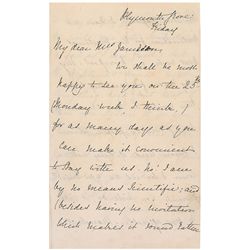 Plymouth Grove:
Friday
My dear Mrs Jamieson,
We shall be most
happy to see you on the 25th
(Monday week, I think,)
for as many days as you
can make it convenient
to stay with us. No! I am
by no means Scientific; and
(besides having no invitation
which makes it sound rather